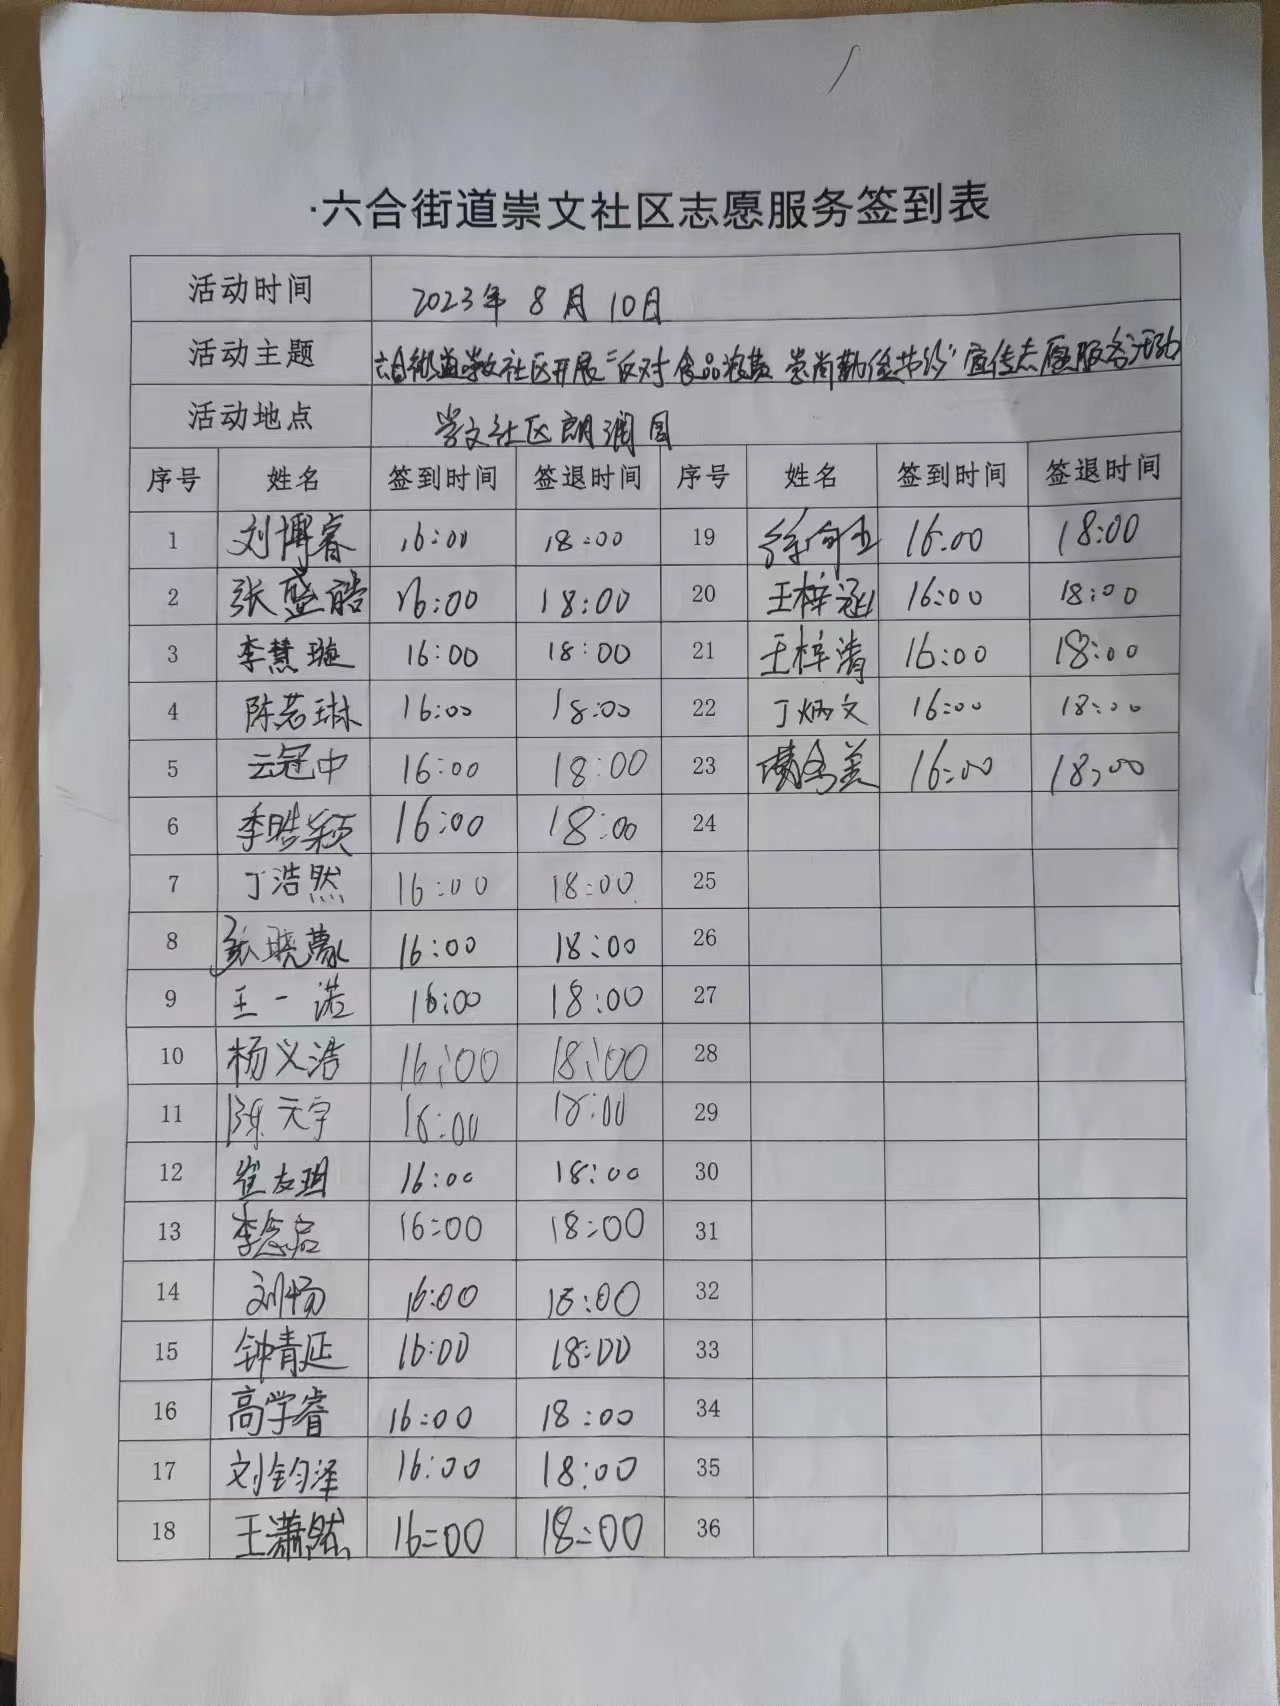 ·六合街道崇文社区志愿服务签到表
活动时间 2023年 8月 10日
活动主题 六合街道崇文社区开展"反对食品浪费 崇尚勤俭节约"宣传志愿服务活动
活动地点 崇文社区朗润园
序号 姓名 签到时间 签退时间 序号 姓名 签到时间 签退时间
1 刘博睿 16:00 18:00 19 徐 16.00 18:00
2 张盛皓 16:00 18:00 20 王梓涵 16:00 18:00
3 李慧璇 16:00 18:00 21 王梓清 16:00 18:00
4 陈若琳 16:00 18:00 22 丁炳文 16:00 18:00
5 云冠中 16:00 18:00 23 16:00 18:00
6 李皓颖 16:00 18:00 24
7 丁浩然 16:00 18:00 25
8 张晓蒙 16:00 18:00 26
9 王一诺 16:00 18:00 27
10 杨义浩 16:00 18:00 28
11 陈天宇 16:00 18:00 29
12 崔友玥 16:00 18:00 30
13 李念启 16:00 18:00 31
14 刘畅 16:00 18:00 32
15 钟青延 16:00 18:00 33
16 高学睿 16:00 18:00 34
17 刘钧泽 16:00 18:00 35
18 王潇然 16:00 18:00 36